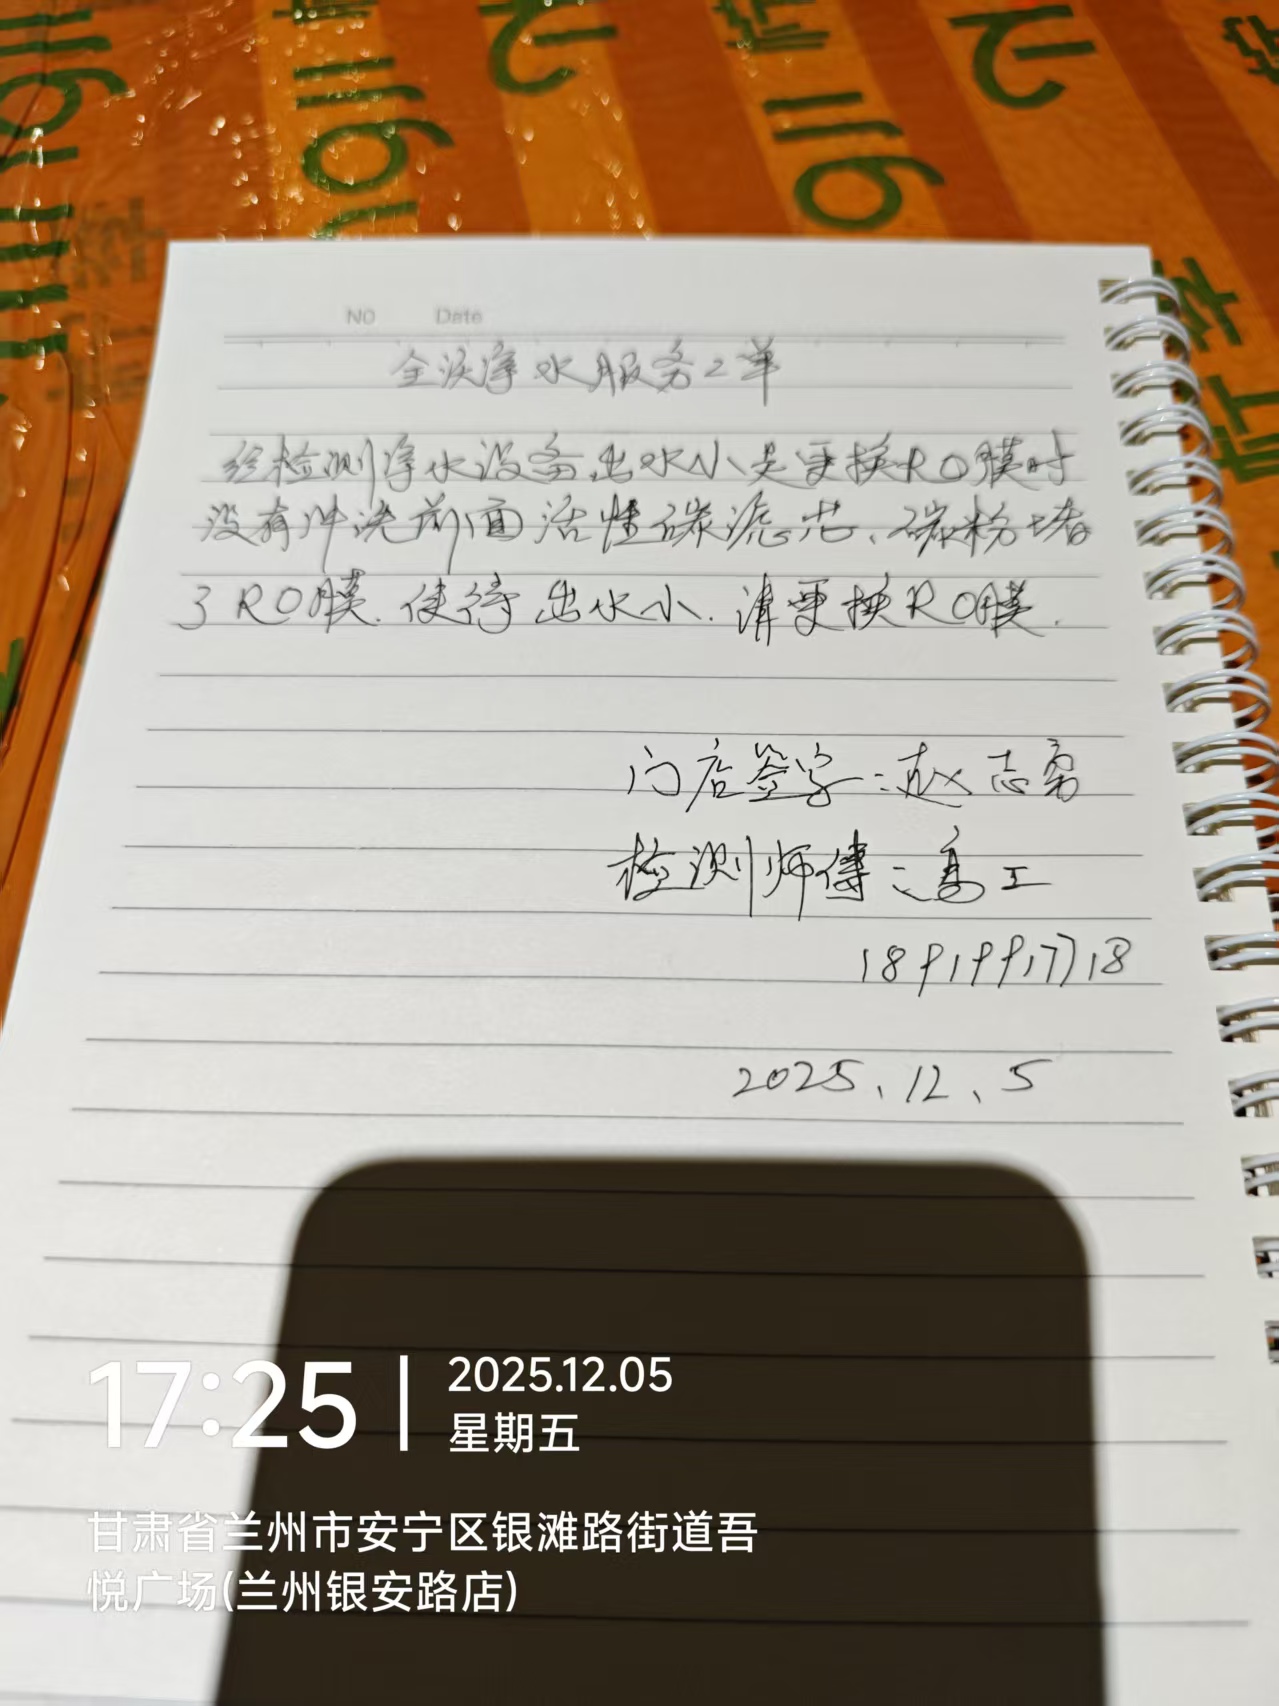 NO Date
全涙净水服务工单
经检测净水设备出水小是更换RO膜时
没有冲洗前面活性碳滤芯、碳粉堵
了RO膜.使得出水小.请更换RO膜.
门店签字:赵志勇
检测师傅:高工
18919917718
2025、12、5
17:25
2025.12.05
星期五
甘肃省兰州市安宁区银滩路街道吾
悦广场(兰州银安路店)